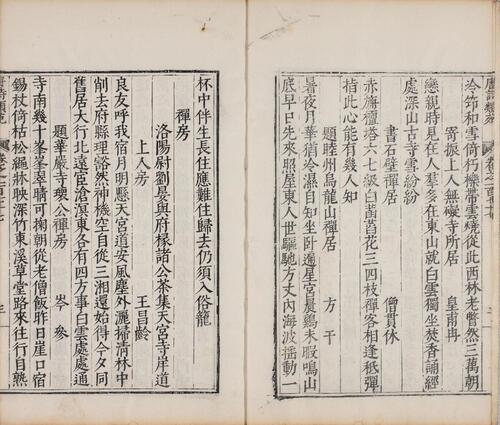 冷筇和雪倚穩幕帶雲燒從此西林老瞥然三萬朝
寄振上人無礙寺所居 皇甫冉
戀親時見在人羣多在東山就白雲獨坐焚香誦經
處深山古寺雪紛紛
書石壁禪居 僧貫休
赤旃檀塔六七級白菡萏花三四枝禪客相逢秪彈
指此心能有幾人知
題睦州烏龍山禪居 方干
暑夜月華猶冷濕自知坐臥逼星宮晨鷄未暇鳴山
底早日先來照屋東人世驅馳方丈內海波搖動一
杯中伴生長住應難住歸去仍須入俗籠
禪房
洛陽尉劉晏與府椽諸公茶集天宮寺岸道
上人房 王昌齡
良友呼我宿月明懸天宮道安風塵外灑掃清林中
削去府縣理豁然神機空自從三湘還始得今夕同
舊居太行北遠宦滄溟東各有四方事白雲處處通
題華嚴寺瓌公禪房 岑參
寺南幾十峯峯翠晴可掬朝從老僧飯昨日崖口宿
錫杖倚枯松繩牀映深竹東溪草堂路來往行自熟